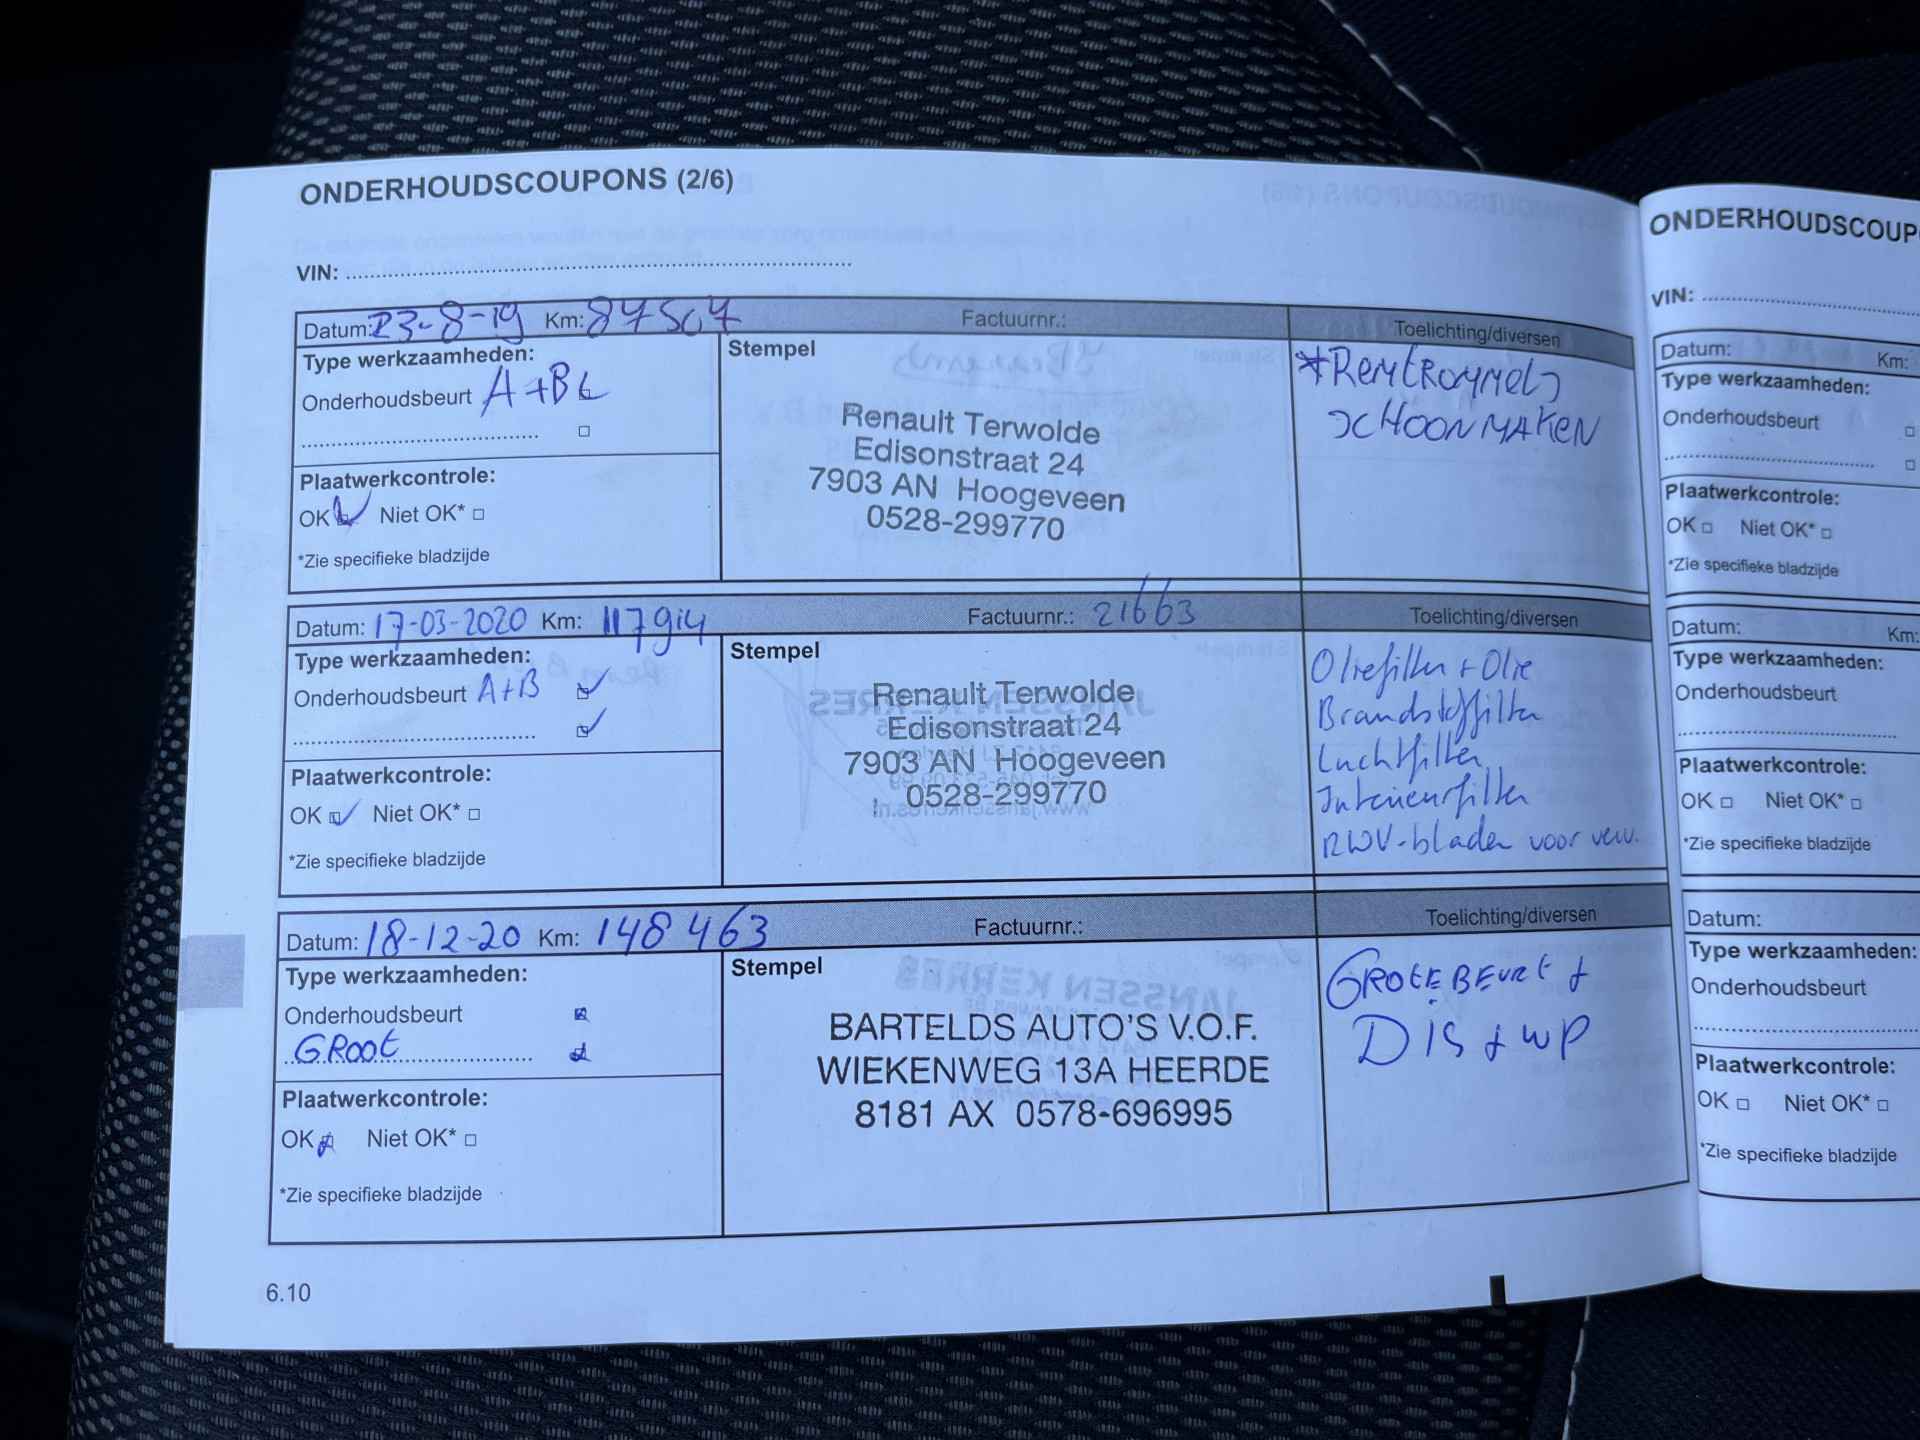 ONDERHOUDSCOUPONS (2/6)
VIN:
Datum: 23-8-19 Km: 87507 Factuurnr.: Toelichting/diversen
Type werkzaamheden:
Onderhoudsbeurt A+B
Plaatwerkcontrole:
OK Niet OK*
*Zie specifieke bladzijde
Stempel
Renault Terwolde
Edisonstraat 24
7903 AN Hoogeveen
0528-299770
*REMTROMMELS
SCHOONMAKEN
Datum: 17-03-2020 Km: 117914 Factuurnr.: 21663 Toelichting/diversen
Type werkzaamheden:
Onderhoudsbeurt A+B
Plaatwerkcontrole:
OK Niet OK*
*Zie specifieke bladzijde
Stempel
Renault Terwolde
Edisonstraat 24
7903 AN Hoogeveen
0528-299770
Oliefilter + Olie
Brandstoffilter
Luchtfilter
Interieurfilter
RWV-bladen voor verv.
Datum: 18-12-20 Km: 148463 Factuurnr.: Toelichting/diversen
Type werkzaamheden:
Onderhoudsbeurt
GROOT
Plaatwerkcontrole:
OK Niet OK*
*Zie specifieke bladzijde
Stempel
BARTELDS AUTO'S V.O.F.
WIEKENWEG 13A HEERDE
8181 AX 0578-696995
GROTE BEURT +
DIS + WP
6.10
ONDERHOUDSCOUP
VIN:
Datum: Km:
Type werkzaamheden:
Onderhoudsbeurt
Plaatwerkcontrole:
OK Niet OK*
*Zie specifieke bladzijde
Datum: Km:
Type werkzaamheden:
Onderhoudsbeurt
Plaatwerkcontrole:
OK Niet OK*
*Zie specifieke bladzijde
Datum:
Type werkzaamheden:
Onderhoudsbeurt
Plaatwerkcontrole:
OK Niet OK*
*Zie specifieke bladzijde